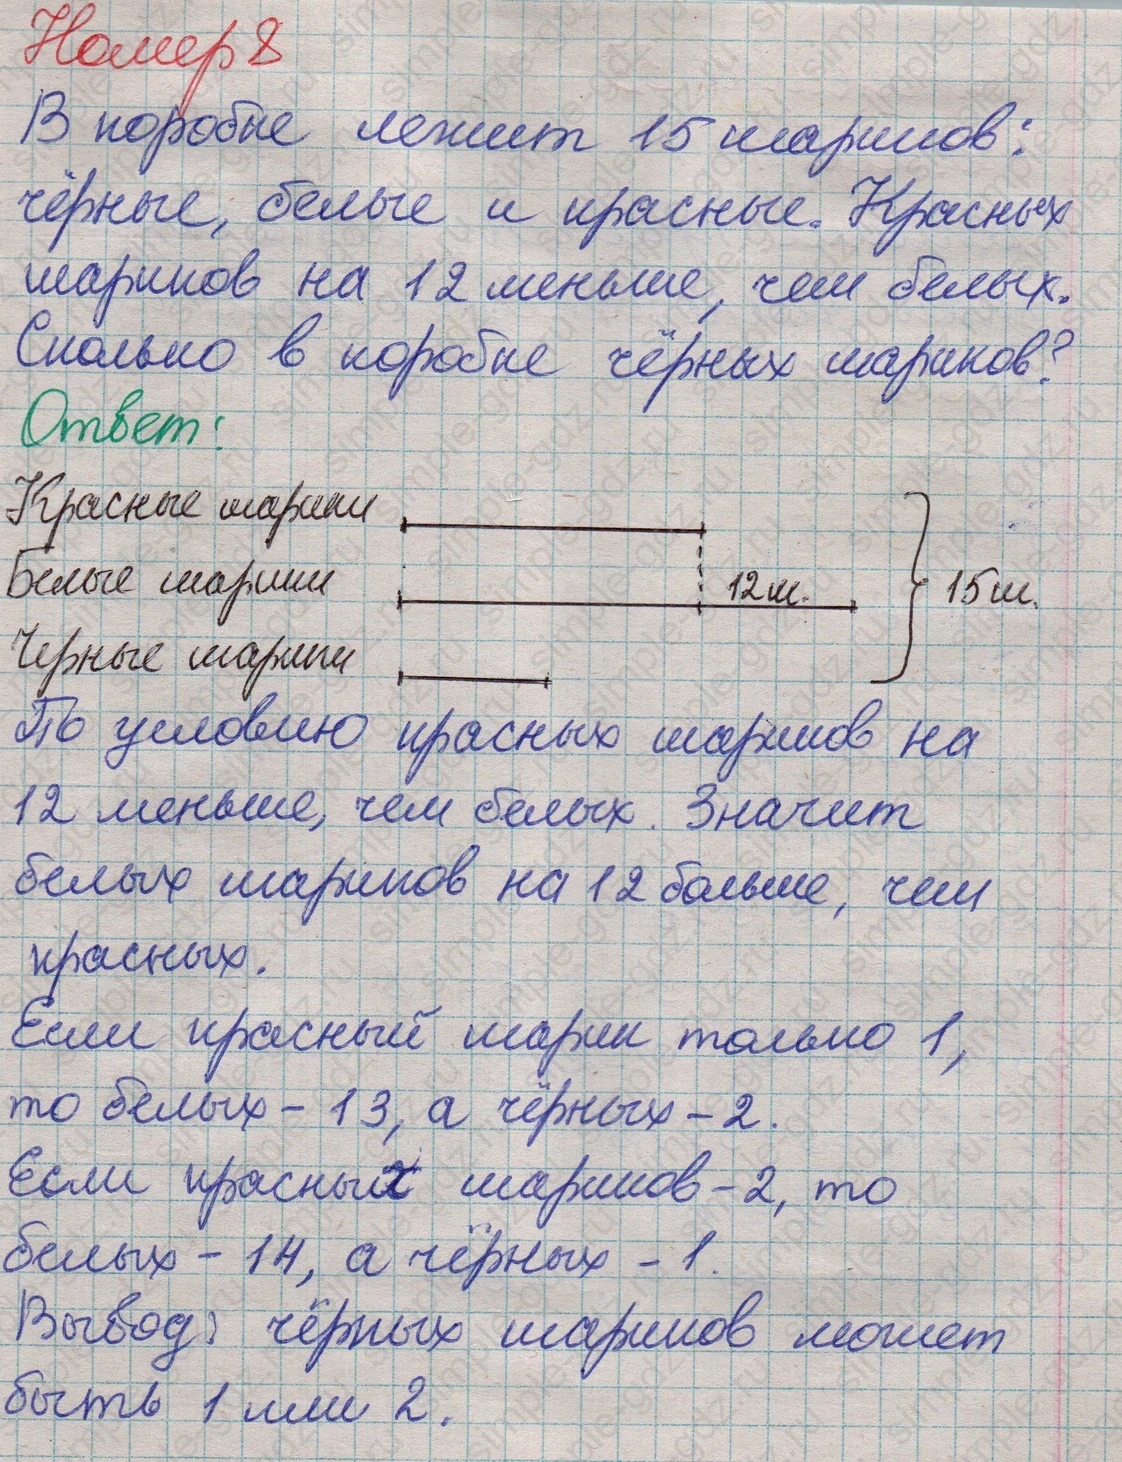 Номер 8
В коробке лежит 15 шариков:
чёрные, белые и красные. Красных
шариков на 12 меньше, чем белых.
Сколько в коробке чёрных шариков?
Ответ:
Красные шарики
Белые шарики 12ш. 15ш.
Черные шарики
По условию красных шариков на
12 меньше, чем белых. Значит
белых шариков на 12 больше, чем
красных.
Если красный шарик только 1,
то белых - 13, а чёрных - 2.
Если красных шариков - 2, то
белых - 14, а чёрных - 1.
Вывод: чёрных шариков может
быть 1 или 2.
simple-gdz.ru